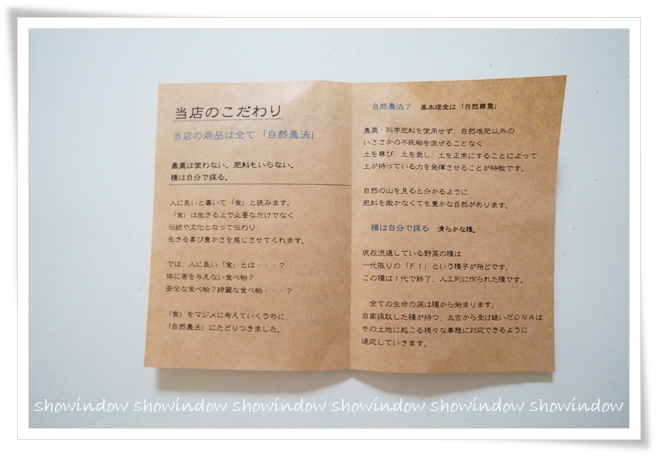 当店のこだわり
当店の商品は全て「自然農法」
農薬は使わない。肥料もいらない。
種は自分で採る。
人に良いと書いて「食」と読みます。
「食」は生きる上で必要なだけでなく
伝統や文化となって伝わり
生きる喜び豊かさを感じさせてくれます。
では、人に良い「食」とは・・・?
体に害を与えない食べ物?
安全な食べ物?綺麗な食べ物・・・?
「食」をマジメに考えていくうちに、
「自然農法」にたどりつきました。
自然農法? 基本理念は「自然尊重」
農薬・科学肥料を使用せず、自然堆肥以外の
いささかの不純物を混ぜることなく
土を尊び、土を愛し、土を正常にすることによって
土が持っている力を発揮させることが特徴です。
自然の山を見ると分かるように
肥料を撒かなくても豊かな自然があります。
種は自分で採る 清らかな種。
現在流通している野菜の種は
一代限りの「F1」という種子が殆どです。
この種は1代で終了、人工的に作られた種です。
全ての生命の源は種から始まります。
自家採取した種が持つ、太古から受け継いだDNAは
その土地に起こる様々な事態に対応できるように
適応していきます。
showindow showindow showindow showindow showindow showindow